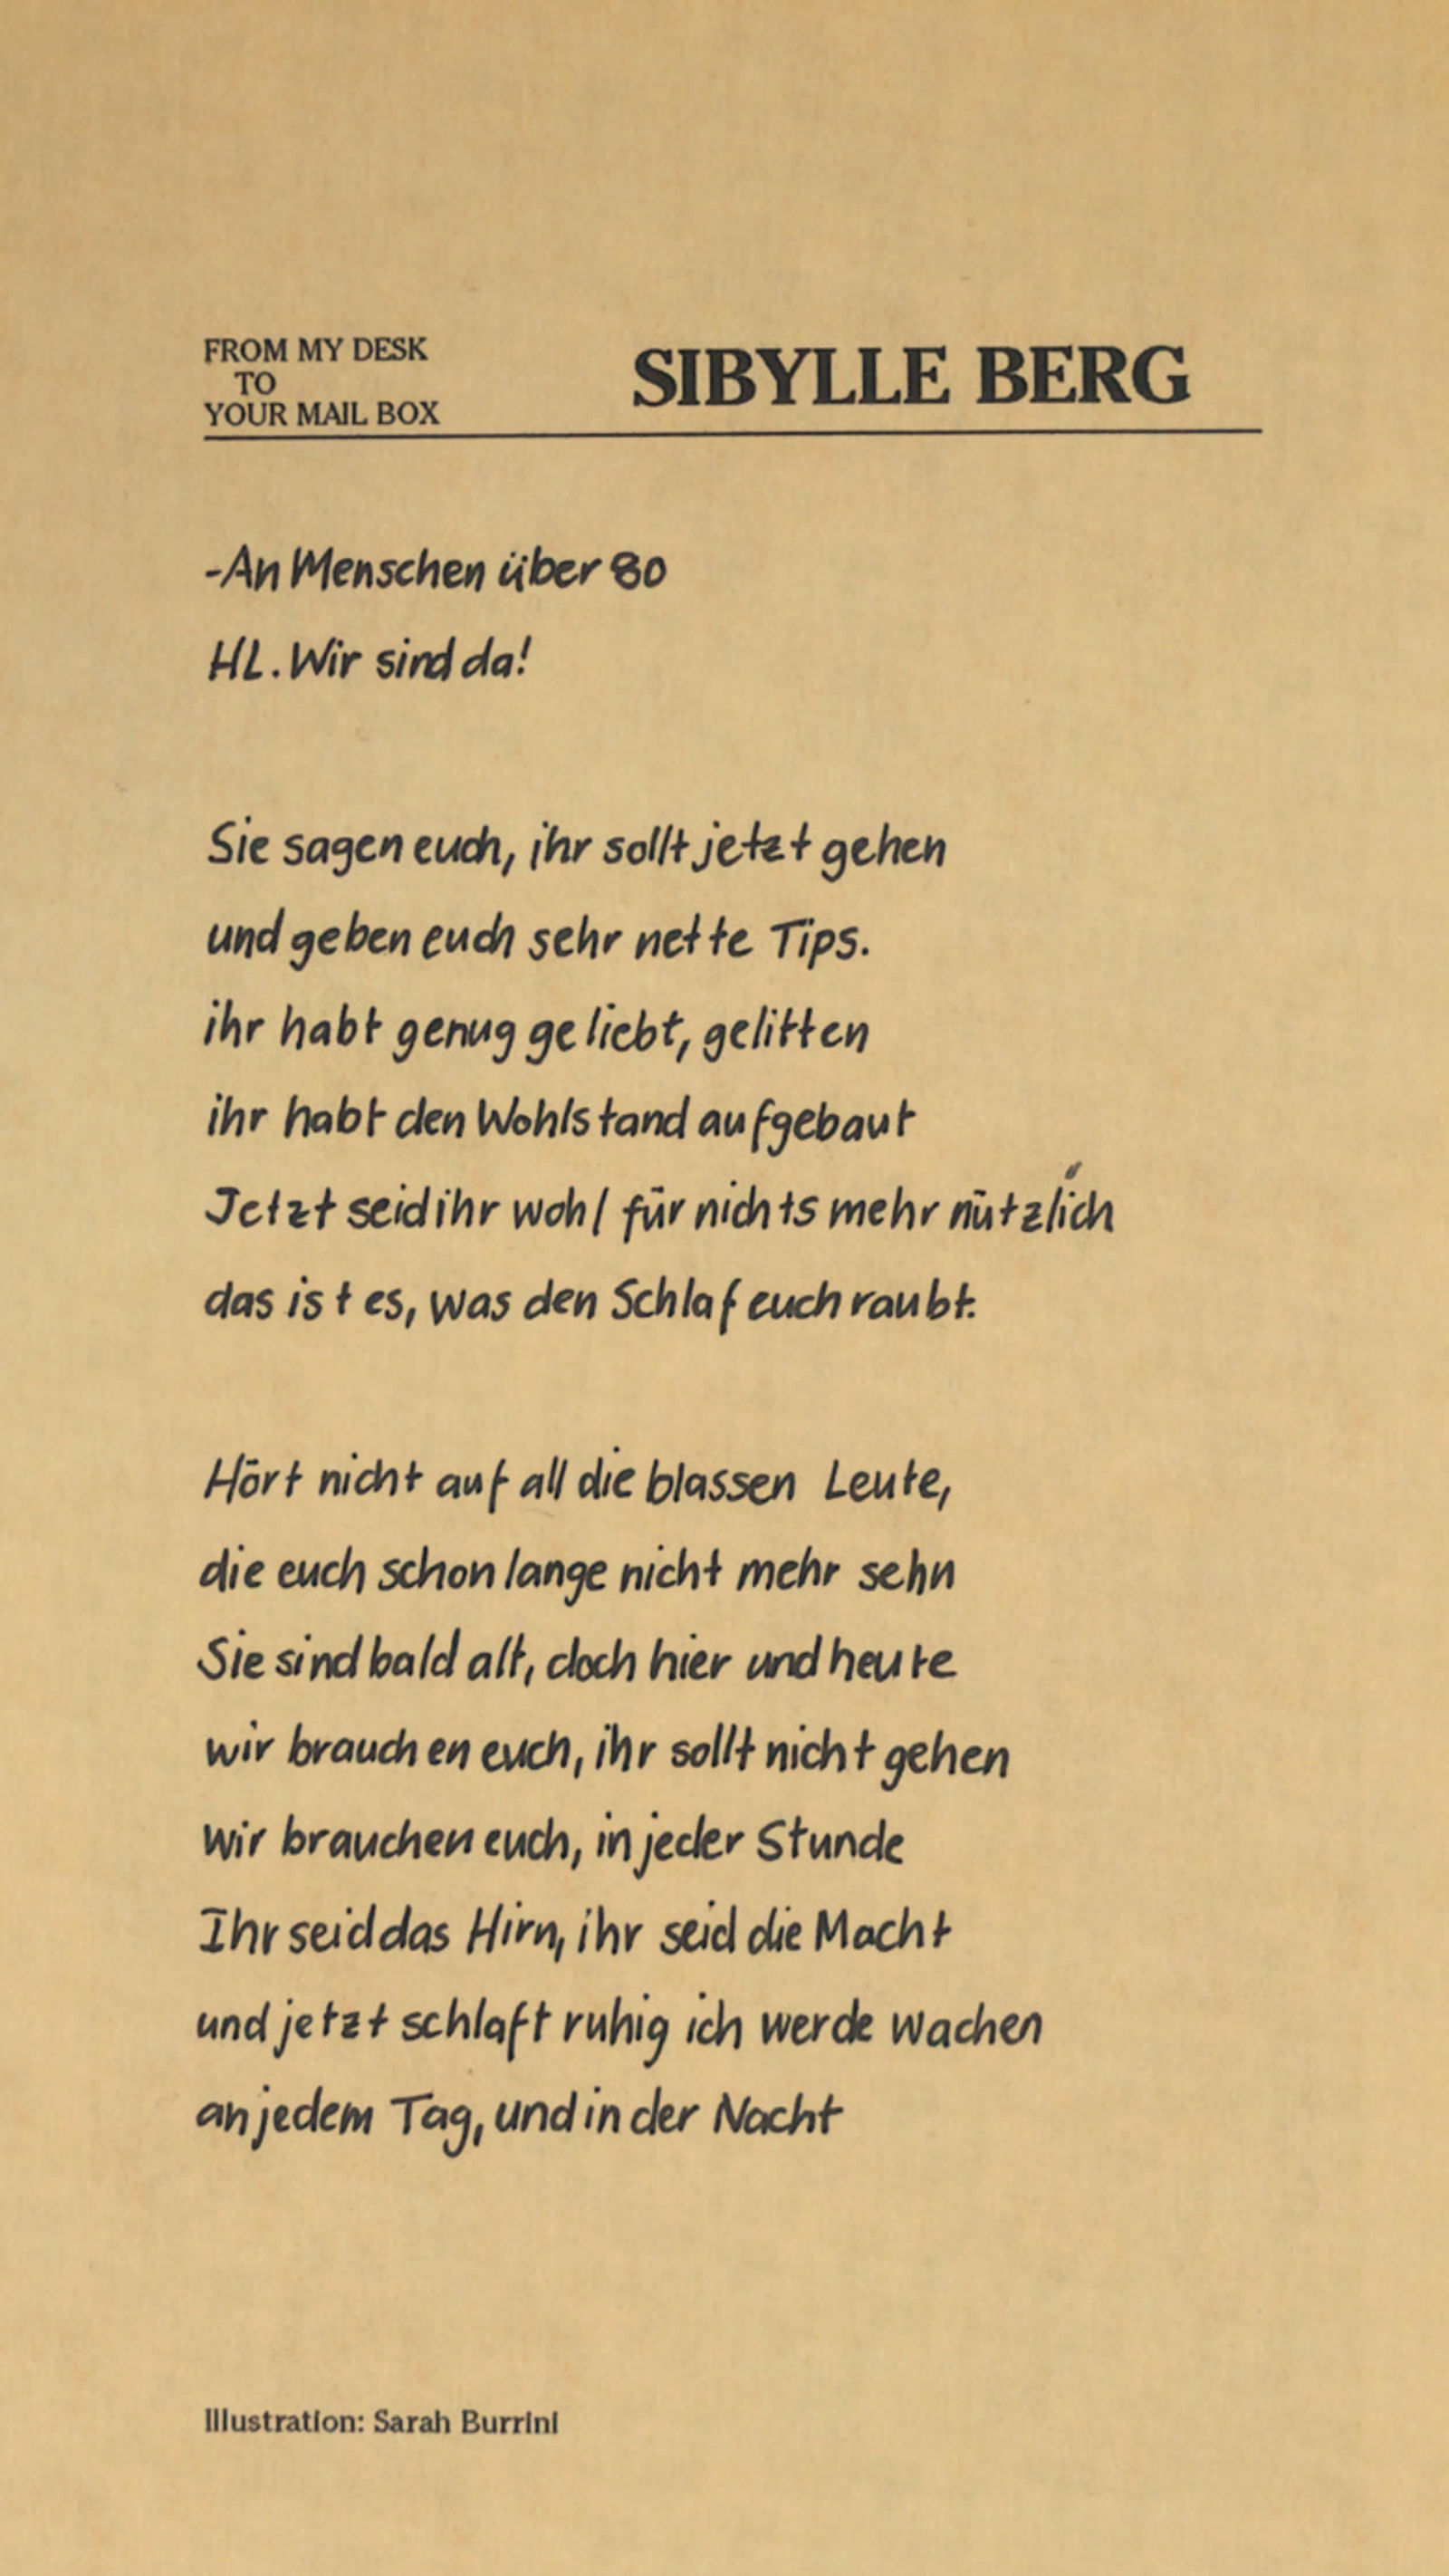 FROM MY DESK
TO
YOUR MAIL BOX
SIBYLLE BERG
-An Menschen über 80
HL. Wir sind da!
Sie sagen euch, ihr sollt jetzt gehen
und geben euch sehr nette Tips.
ihr habt genug geliebt, gelitten
ihr habt den Wohlstand aufgebaut
Jetzt seid ihr wohl für nichts mehr nützlich
das ist es, was den Schlaf euch raubt.
Hört nicht auf all die blassen Leute,
die euch schon lange nicht mehr sehn
Sie sind bald alt, doch hier und heute
wir brauchen euch, ihr sollt nicht gehen
wir brauchen euch, in jeder Stunde
Ihr seid das Hirn, ihr seid die Macht
und jetzt schlaft ruhig ich werde wachen
an jedem Tag, und in der Nacht
Illustration: Sarah Burrini